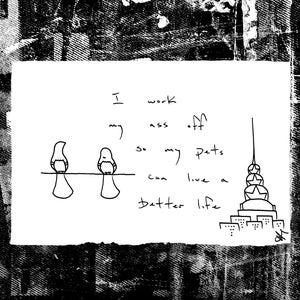 I work
my ass off
so my pets
can live a
better life